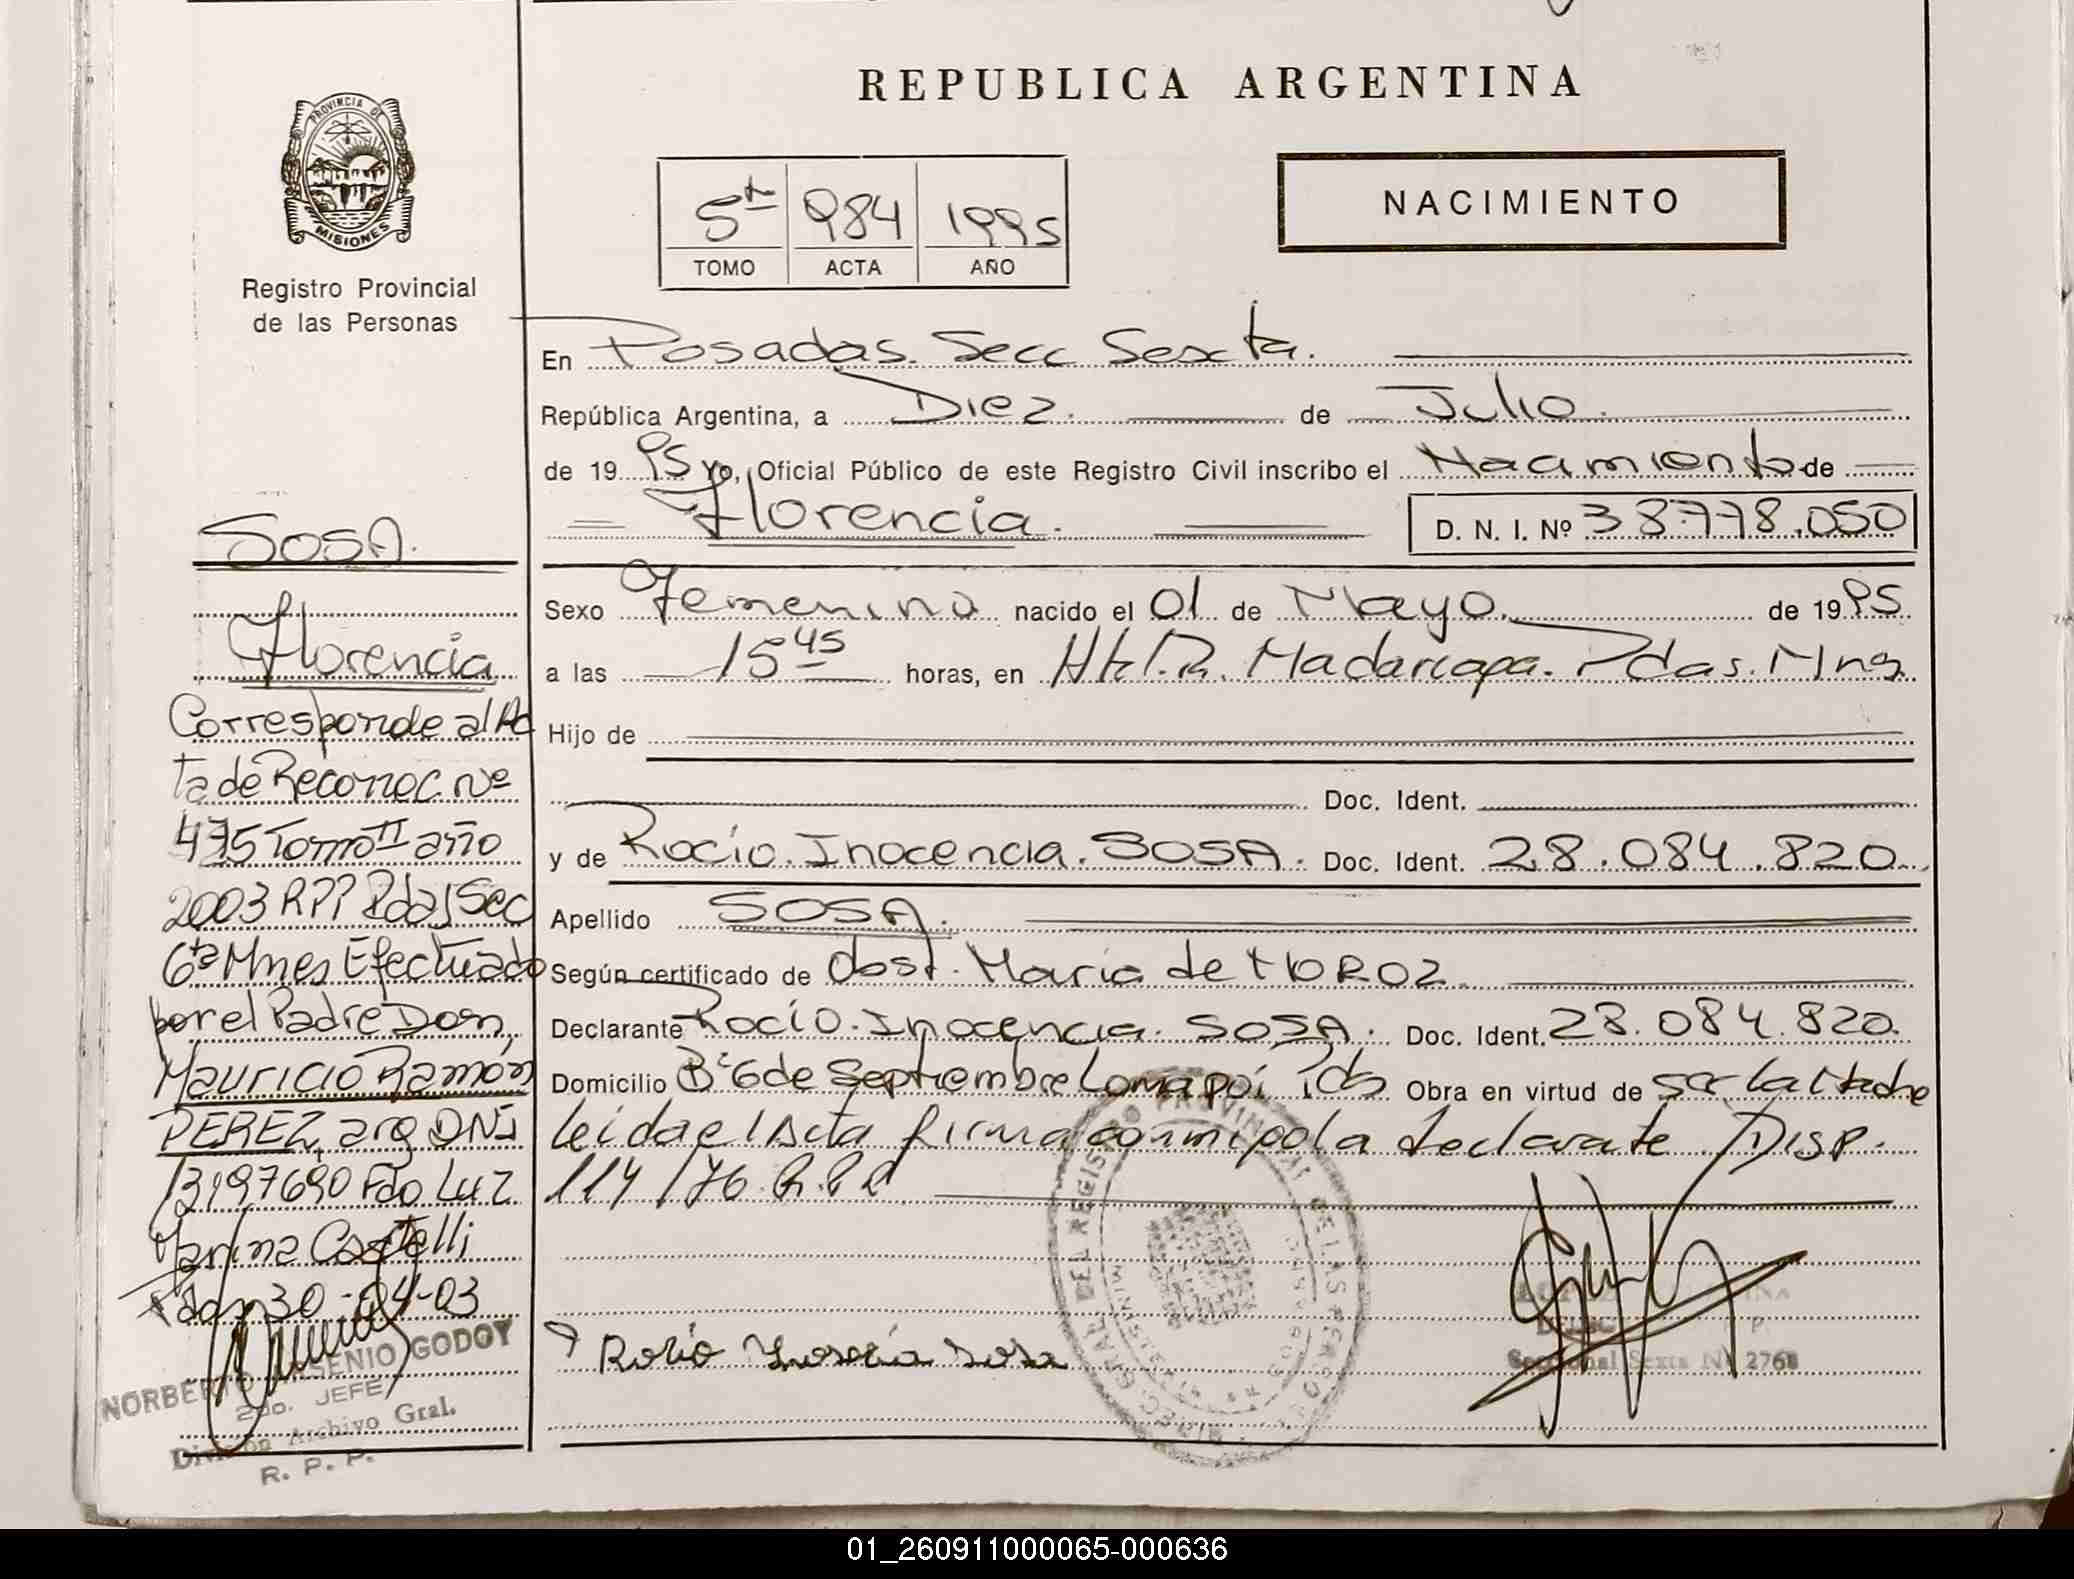 REPUBLICA ARGENTINA
PROVINCIA DE
MISIONES
Registro Provincial
de las Personas
5to 984 1995
TOMO ACTA AÑO
NACIMIENTO
En Posadas. Secc Sexta.
República Argentina, a Diez. de Julio.
de 1995 Yo, Oficial Público de este Registro Civil inscribo el Nacimiento de
Florencia. D. N. I. Nº 38.778.050
Sexo Femenino nacido el 01 de Mayo. de 1995
a las 15 45 horas, en Htl.R. Madariaga. Pdas. Mns.
Hijo de
Doc. Ident.
y de Rocío. Inocencia. SOSA. Doc. Ident. 28.084.820
Apellido SOSA.
Según certificado de Obst. Maria de MOROZ
Declarante Rocío. Inocencia. SOSA. Doc. Ident. 28.084.820.
Domicilio Bº 6 de Septiembre Lomapoí Pds Obra en virtud de ser la Madre
leida el Acta firma conmigo la declarate Disp.
114/76. R.P.P
Rocío Inosencia Sosa
Seccional Sexta Nº 2768
SOSA.
Florencia
Corresponde al Ac
ta de Reconoc Nº
475 Tomo II año
2003 RPP Pdas Sec
6ta Mnes Efectuado
por el Padre Don,
Mauricio Ramón
PEREZ, arg DNI
13197690 Fdo Luz
Marina Castelli
Pdas 30-04-03
NORBERTO ARSENIO GODOY
2do. JEFE
División Archivo Gral.
R. P. P.
01_260911000065-000636